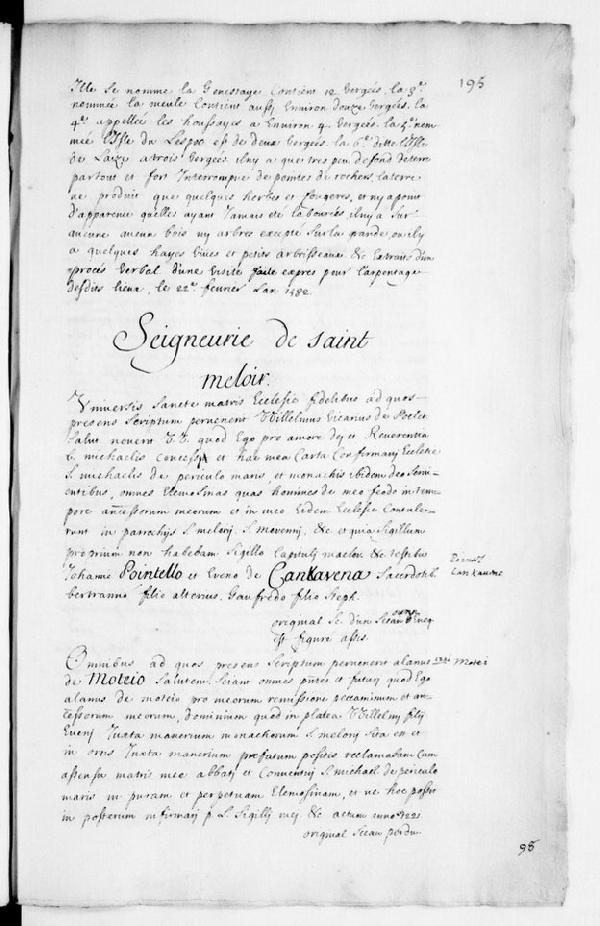 195
Isle se nomme la Genestaye contient 12 Vergées. la 3e.
nommée la meule Contient aussy Environ douze Vergées. la
4e. appellée les houssayes a Environ 4. Vergées. la 5e. nom-
mée l'Isle du Lespoc est de deux Vergées. la 6e. ditte l'Isle
de Laize a trois Vergées. il ny a que tres peu de fond de terre
partout et fort Interrompue de pointes de rochers, la terre
ne produit que quelques herbes et fougeres, et ny a point
d'apparence quelles ayent Jamais eté labourées il ny a sur
aucune aucun bois ny arbres excepté sur la grande ou il y
a quelques hayes Vives et petits arbrisseaux. &c Extraits d'un
procés Verbal d'une Visite faite exprés pour l'arpentage
desdits lieux, le 22e. fevrier Lan 1482.
Seigneurie de saint
meloir.
Vniversis Sancte matris Ecclesie fidelibus ad quos
presens Scriptum pervenerit Willelmus Vicarius de
Salut noverit quod Ego pro amore dei et Reverentia
b. michaelis Concessi et hac mea Carta Confirmavi Ecclesie
S. michaelis de periculo maris, et monachis ibidem deo Servi-
entibus, omnes Elemosinas quas homines de meo feodo in tem-
pore antecessorum meorum et in meo Eidem Ecclesie Contule-
runt in parochijs S. melorij, S. &c et quia Sigillum
proprium non habebam Sigillo Capituli maclov. &c testibus
Johanne Pointello et Eveno de Cankavena Sacerdotib.
Cankavene
bertranno filio alterius. Gaufredo filio Steph.
original se. d'un Sceau
figure assis.
Omnibus ad quos presens Scriptum pervenerit alanus
Motei
de Moteio Salutem. Sciant omnes pntes et futuri quod Ego
alanus de moteio pro meorum remissione peccaminum et an-
tessorum meorum, dominium quod in platea Willelmi filij
Evenj Juxta manerium monachorum S. melorij sita est et
in ortis Juxta manerium prefatum positis reclamabam Cum
assensu matris mee abbatj et Conventuj S. michael. de periculo
maris in puram et perpetuam Elemosinam, et ne hoc possit
in posterum infirmarj p. S. Sigillj mej. &c actum anno 1221.
original Sceau perdu.
98